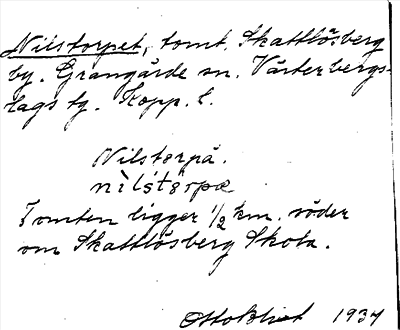 Nilstorpet, tomt, Skattlösberg
by. Grangärde sn. Västerbergs-
lags tg. Kopp. l.
Nilstorpä.
nìlstorpæ
Tomten ligger 1/2 km. söder
om Skattlösberg Skola.
Otto Blixt 1934